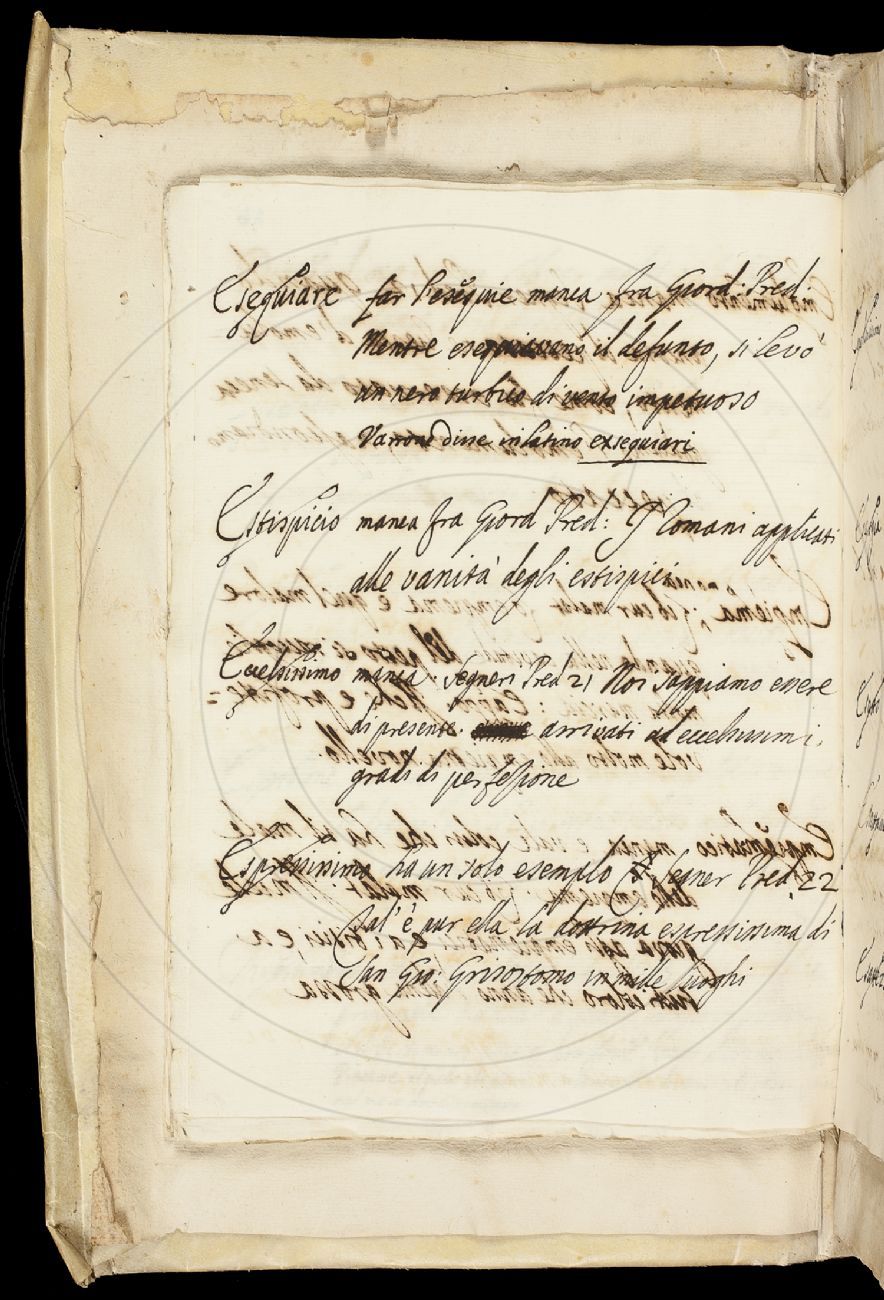 Esequiare far l'esequie manca. fra Giord: Pred.
Mentre esequiavano il defunto, si levò
un nero turbico di vento impetuoso
Varrone disse in latino exsequiari
Estispicio manca fra Giord Pred: I Romani applicati
alle vanità degli estispici
Eccelsissimo manca. Segneri Pred 21 Noi sappiamo essere
di presente arrivati ad eccelsissimi
gradi di perfezione
Espressissimo ha un solo esemplo Segner Pred. 22
Tal' è pur ella la dottrina espressissima di
San Gio: Grisostomo in mille luoghi